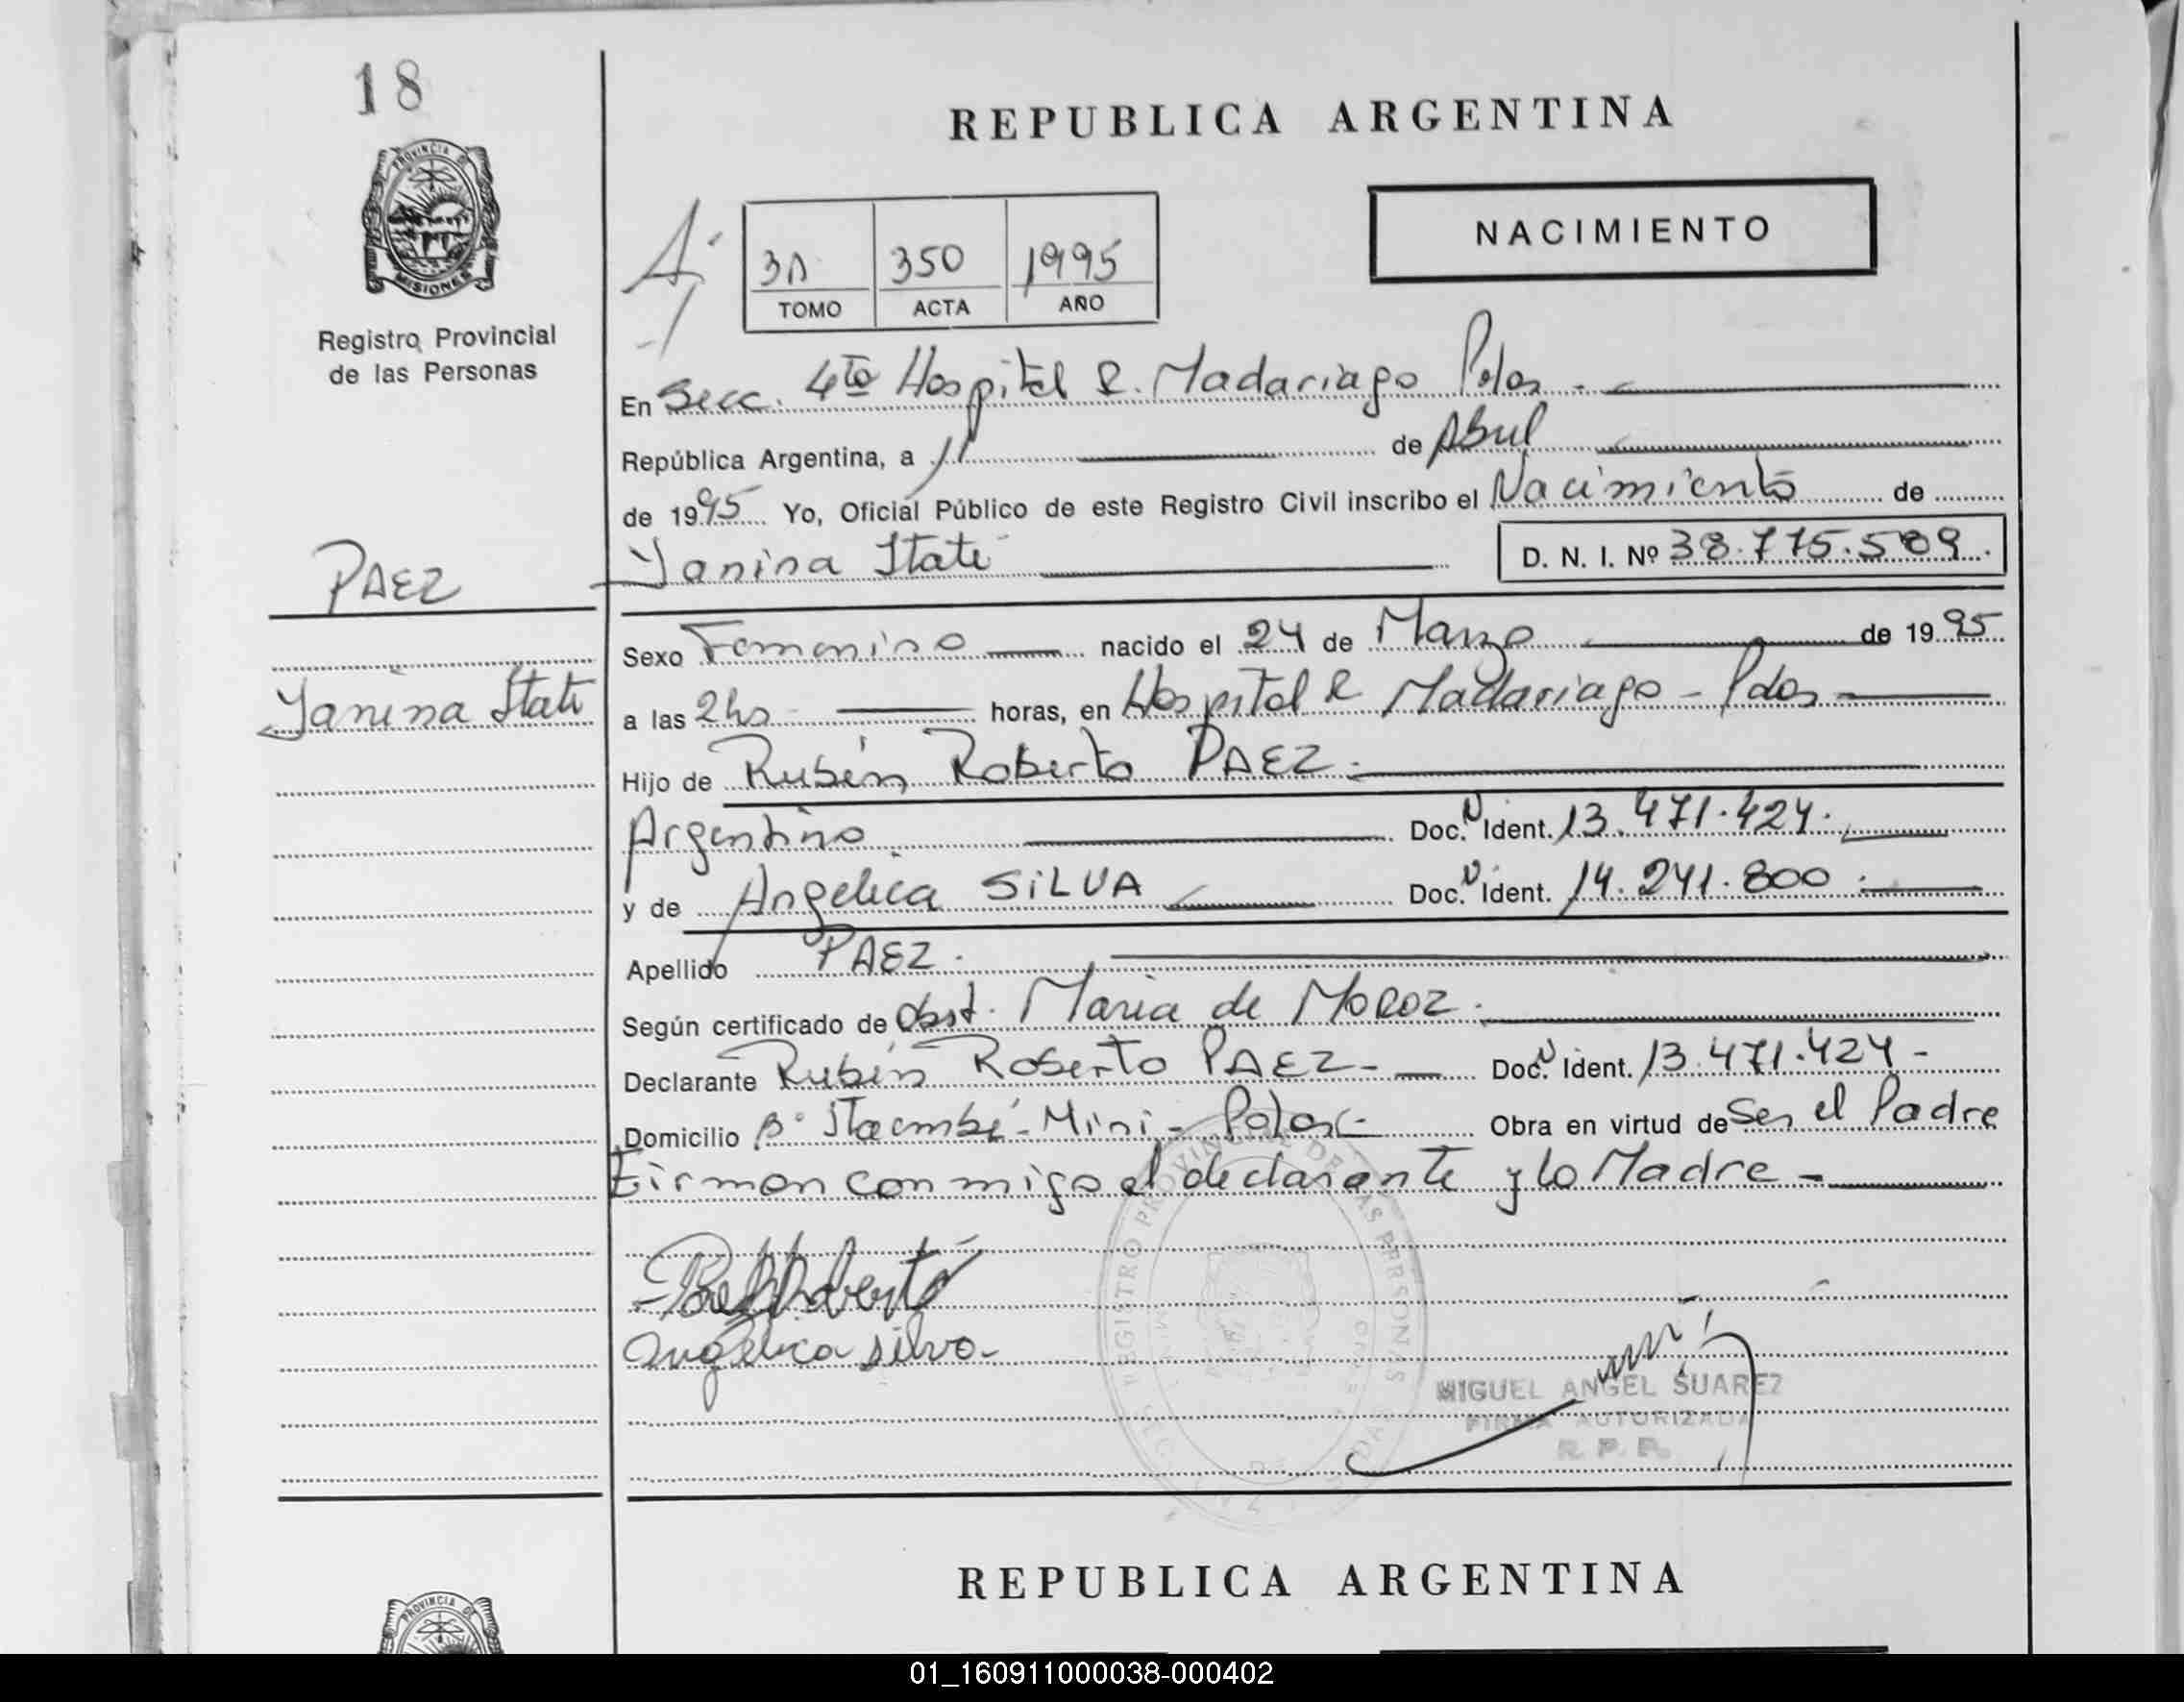 18
PROVINCIA DE
MISIONES
Registro Provincial
de las Personas
PAEZ
Yanina Itati
REPUBLICA ARGENTINA
NACIMIENTO
3A 350 1995
TOMO ACTA AÑO
En Secc. 4ta Hospital R. Madariaga Pdas -
República Argentina, a 11 de Abril
de 1995 Yo, Oficial Público de este Registro Civil inscribo el Nacimiento de
Yanina Itati D. N. I. Nº 38.775.589.
Sexo Femenino nacido el 24 de Marzo de 1995
a las 2hs horas, en Hospital R Madariaga - Pdas -
Hijo de Rubén Roberto PAEZ.
Argentino Doc. N Ident. 13.471.424.
y de Angelica SILVA Doc. N Ident. 14.241.800.
Apellido PAEZ.
Según certificado de Obst. Maria de MOROZ.
Declarante Rubén Roberto PAEZ - Doc. N Ident. 13.471.424 -
Domicilio Bº Itaembé - Mini - Pdas - Obra en virtud de Ser el Padre
Firman conmigo el declarante y la Madre -
Angelica Silva -
REGISTRO PROVINCIAL DE LAS PERSONAS
MIGUEL ANGEL SUAREZ
FIRMA AUTORIZADA
R. P. P.
REPUBLICA ARGENTINA
PROVINCIA DE
01_160911000038-000402